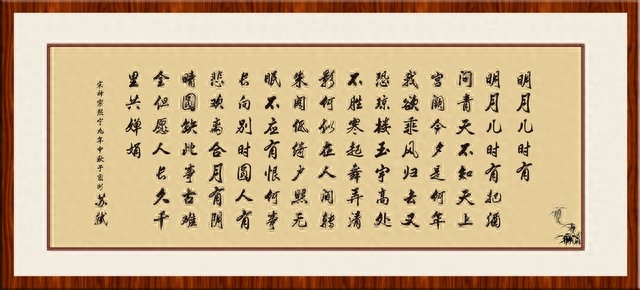 明月几时有
明月几时有把酒
问青天不知天上
宫阙今夕是何年
我欲乘风归去又
恐琼楼玉宇高处
不胜寒起舞弄清
影何似在人间转
朱阁低绮户照无
眠不应有恨何事
长向别时圆人有
悲欢离合月有阴
晴圆缺此事古难
全但愿人长久千
里共婵娟
宋神宗熙宁九年中秋于密州
苏轼